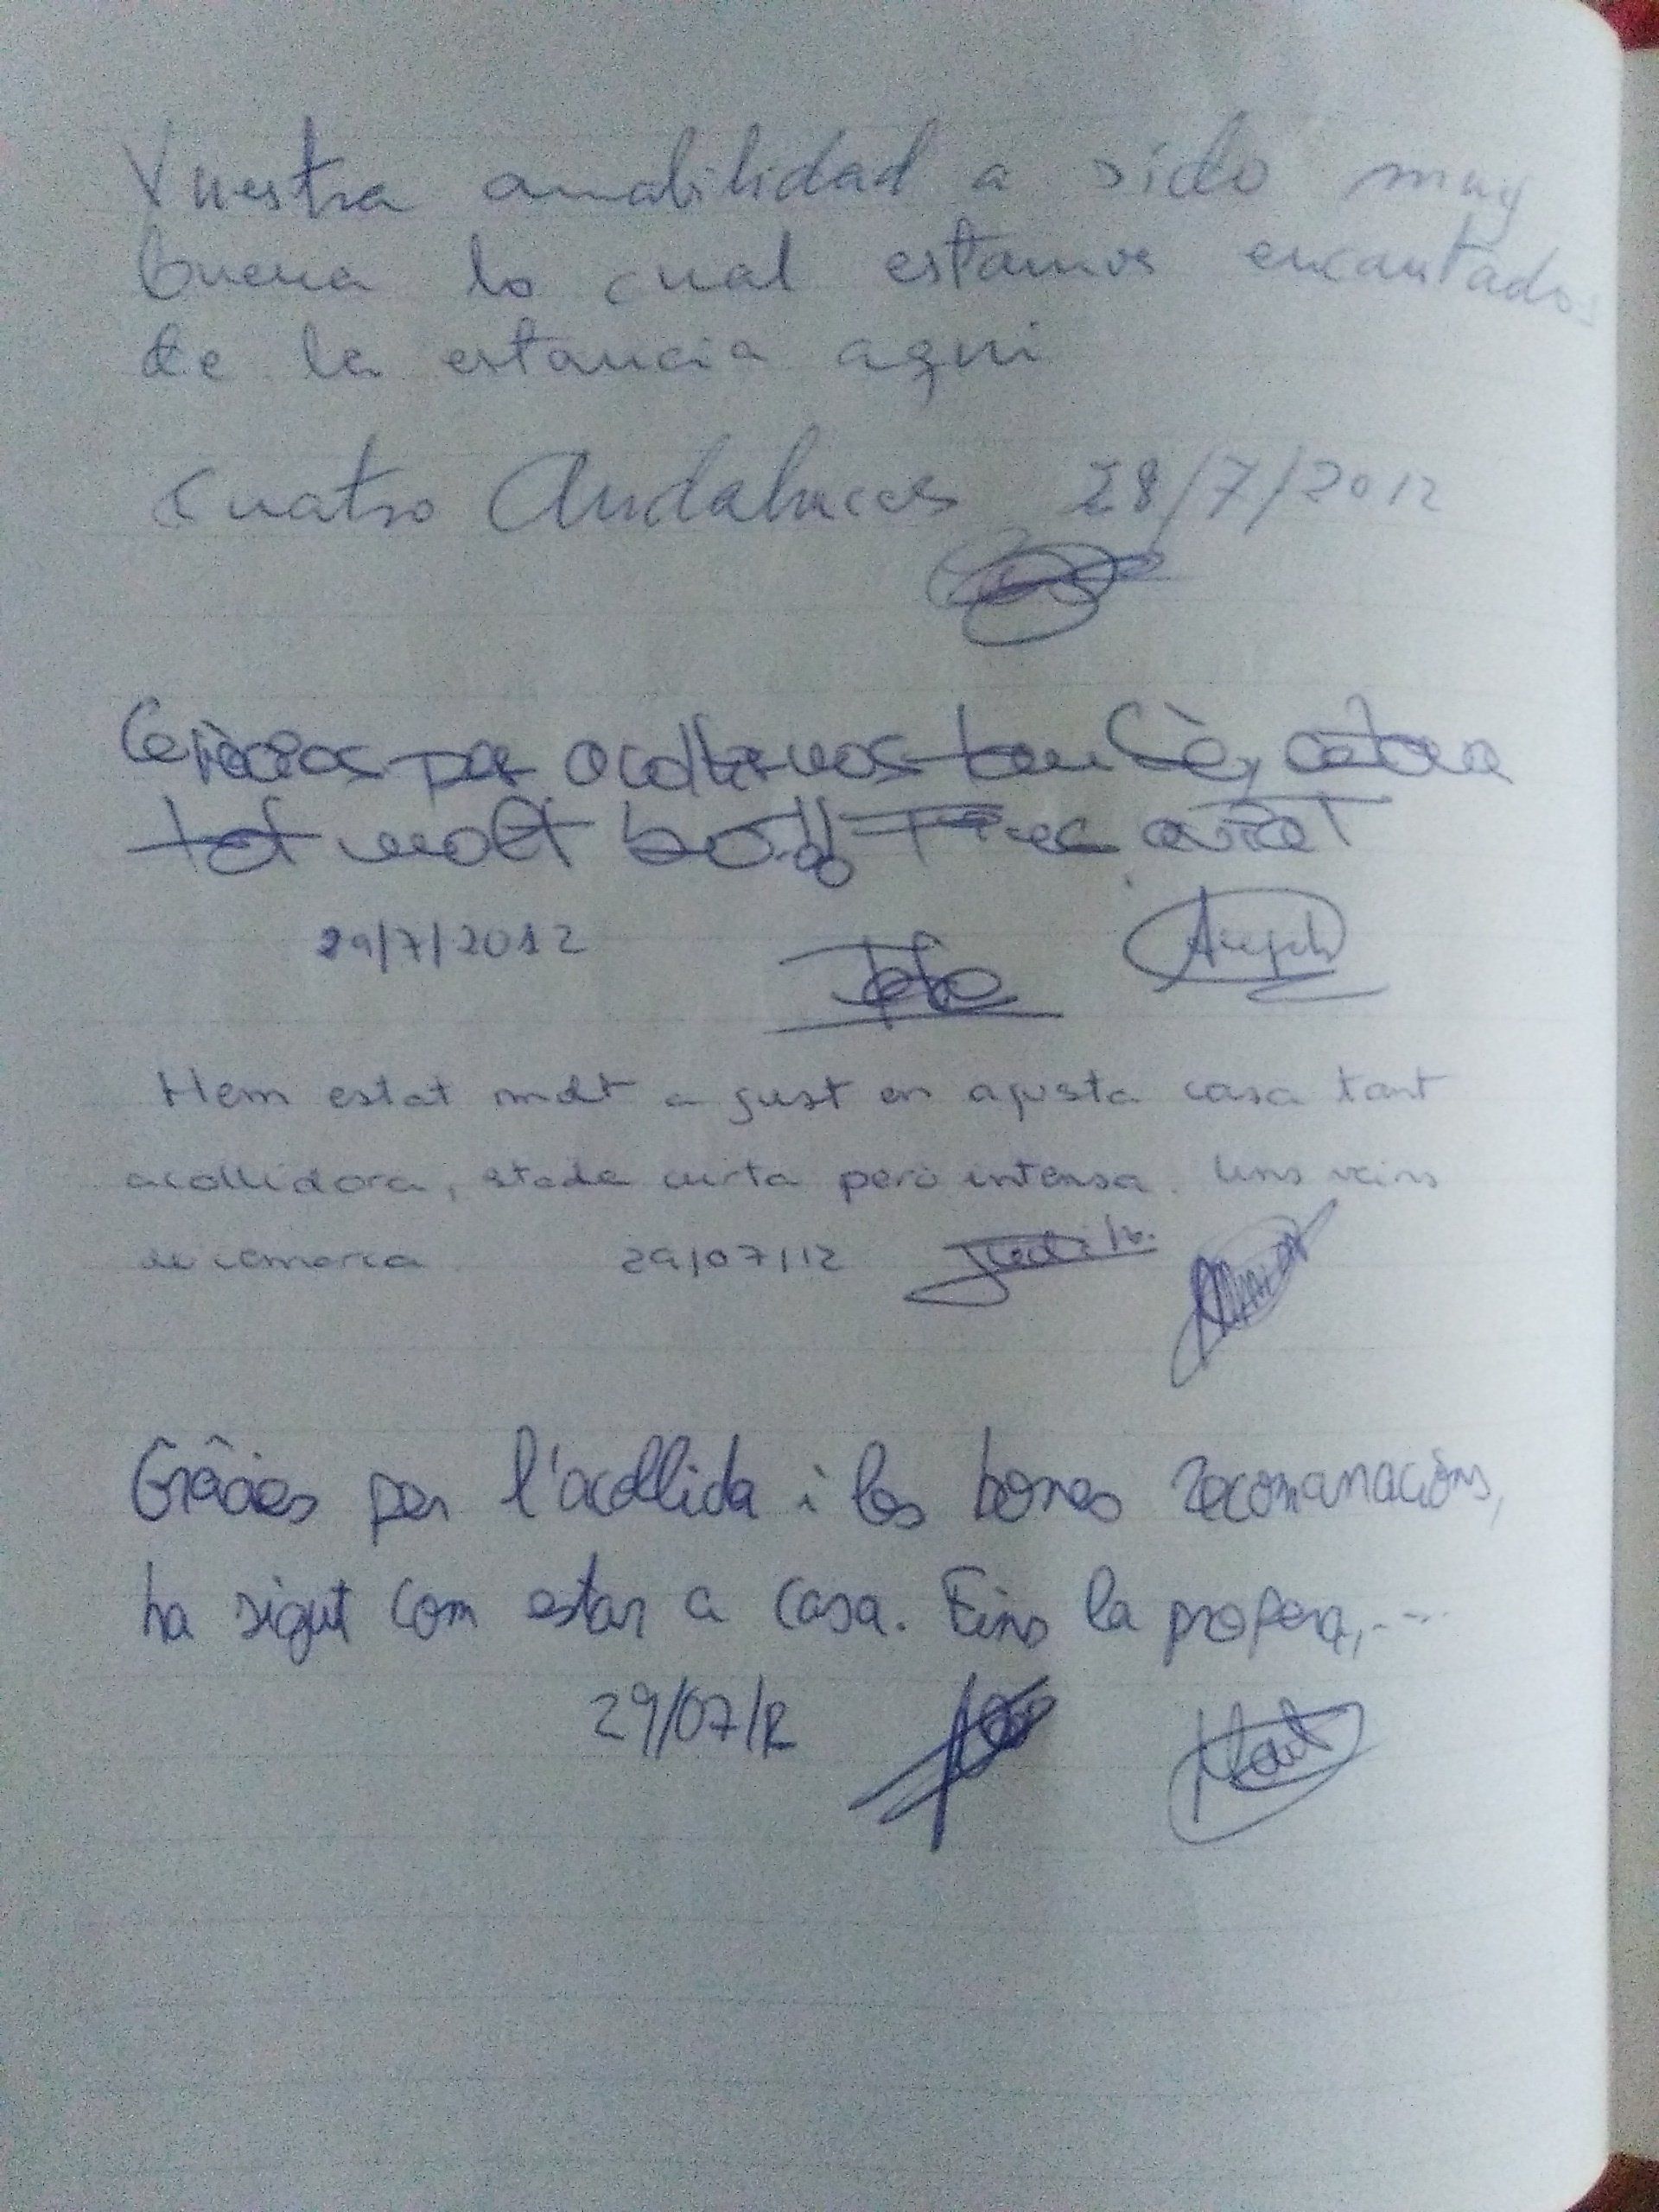 Vuestra amabilidad a sido muy
buena lo cual estamos encantados
de la estancia aqui
Cuatro Andaluces 28/7/2012
Gràcies per acollir-nos tan bè,
tot molt bo!! Fins aviat
29/7/2012
Hem estat molt a gust en aqusta casa tant
acollidora, stada curta però intensa. Uns veins
de comarca 29/07/12 Judith.
Gràcies per l'acollida i les bones recomanacións,
ha sigut com estar a casa. Fins la propera,....
29/07/12